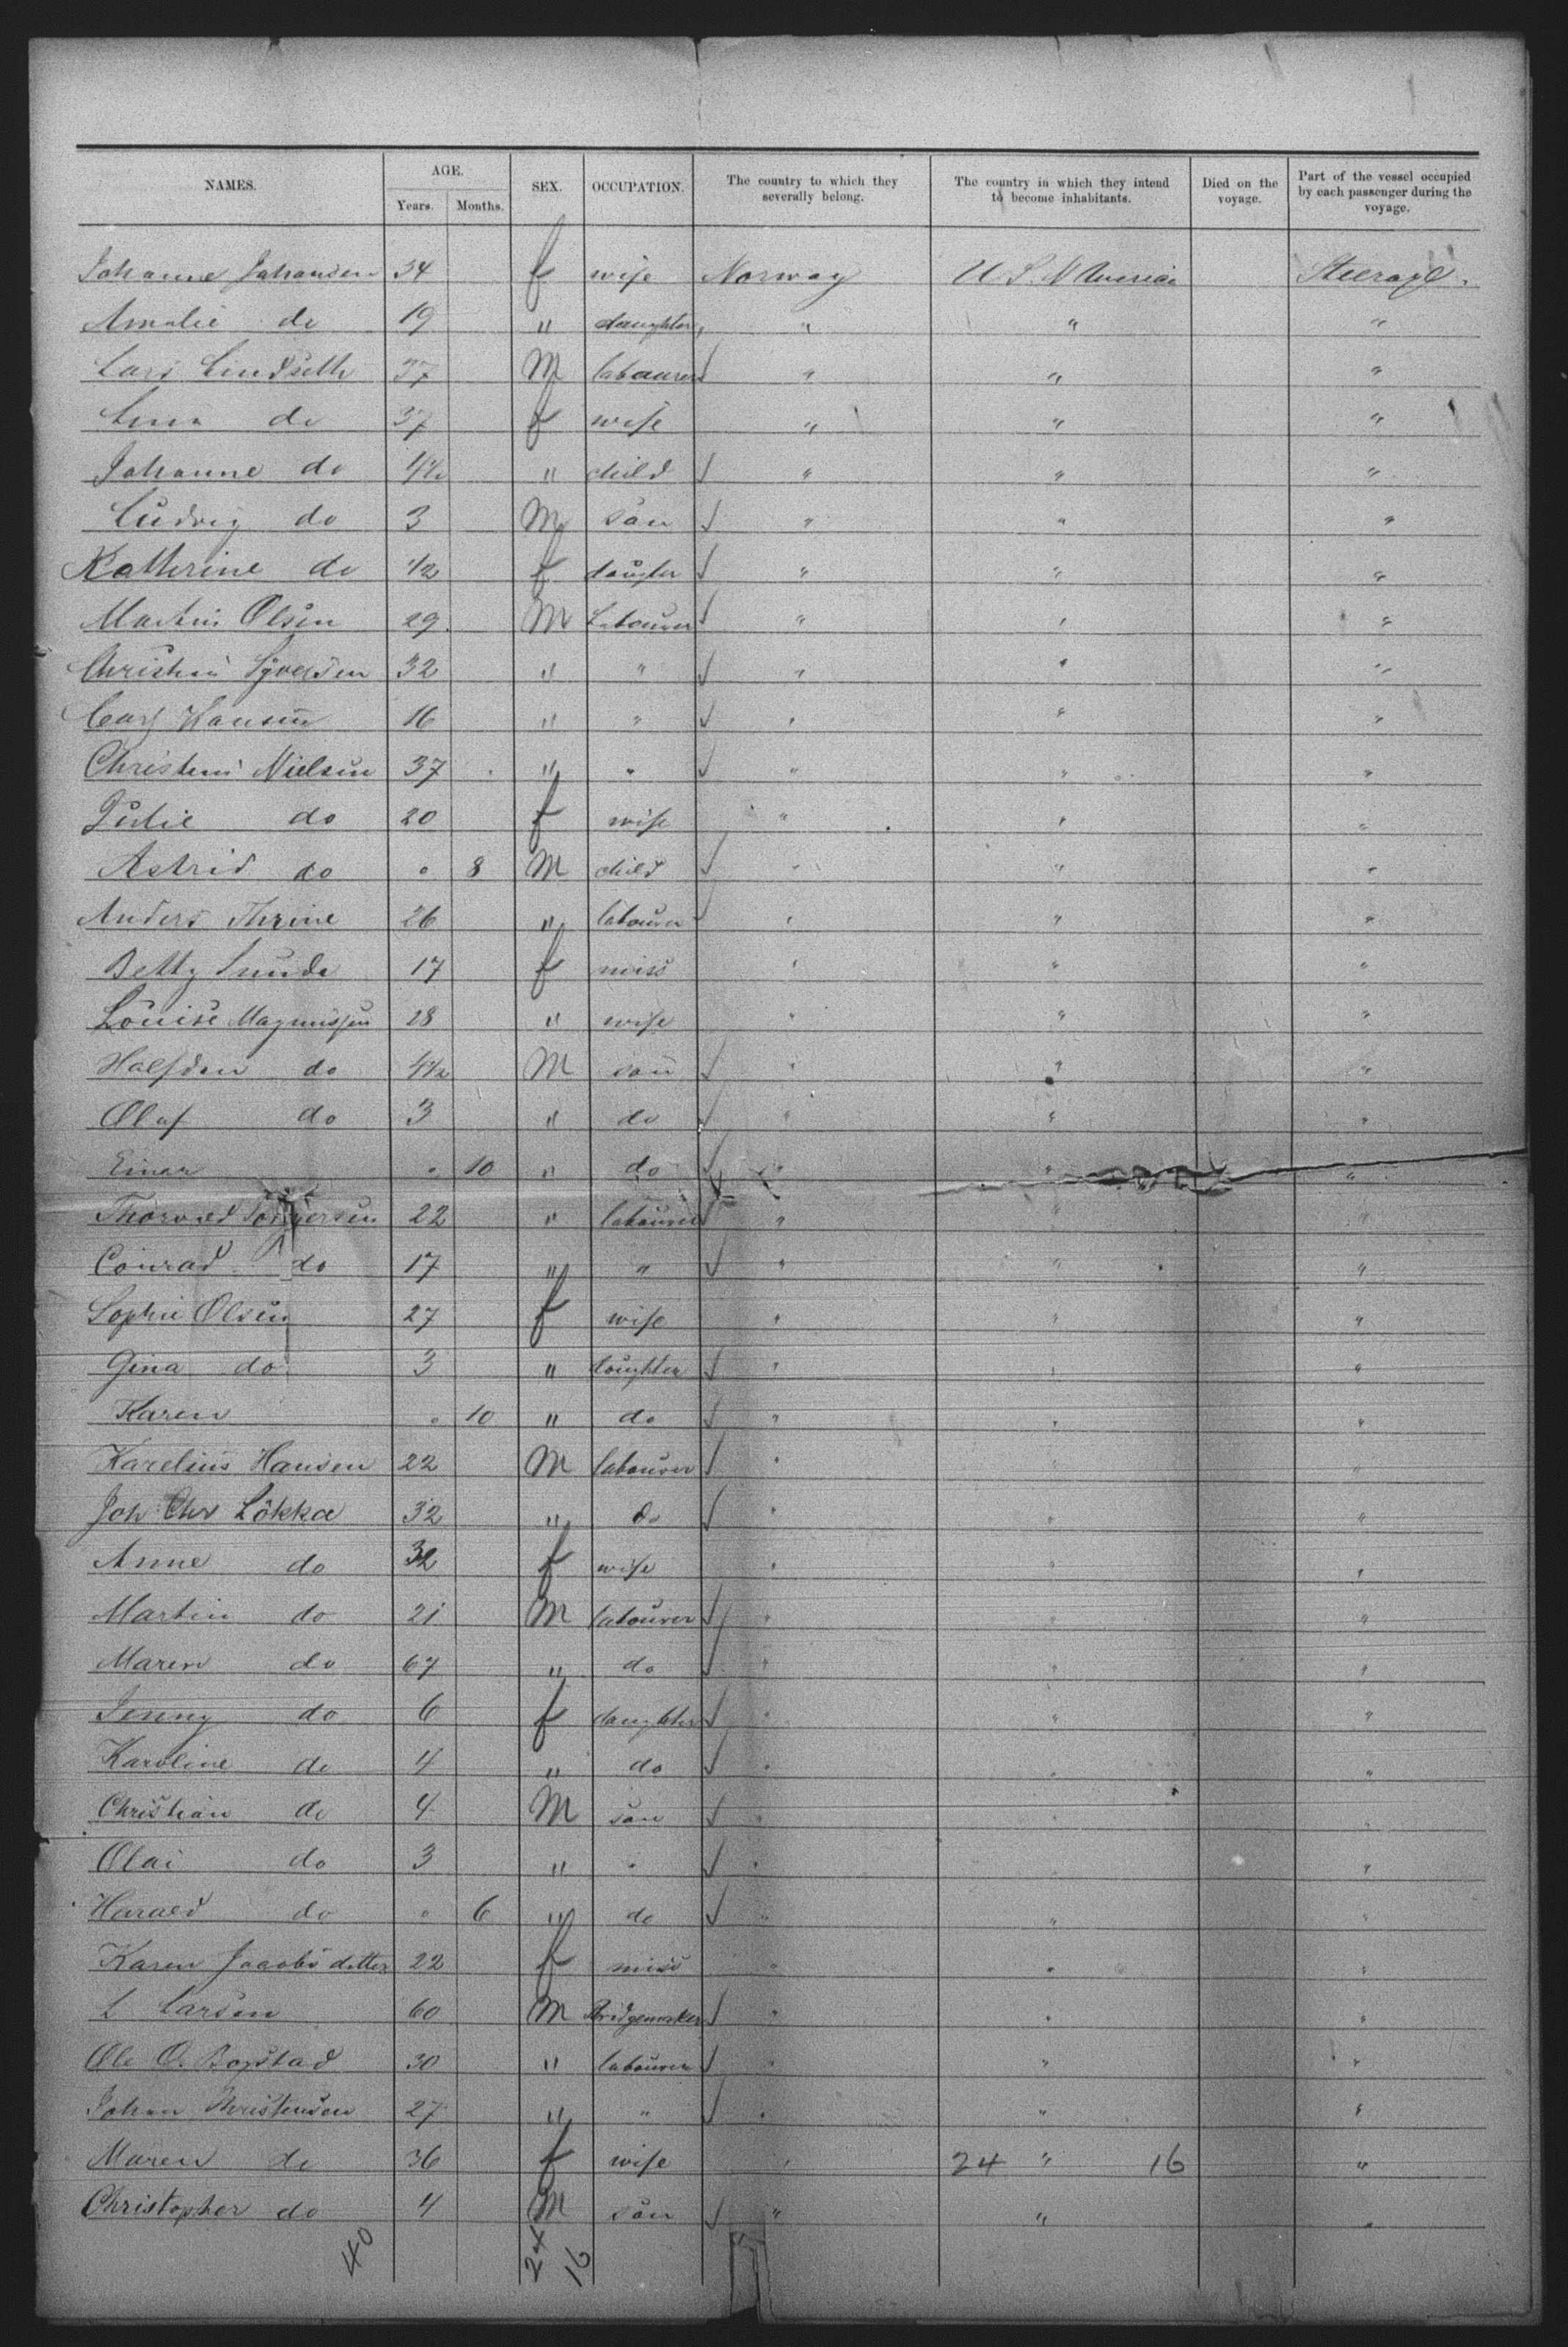 NAMES. AGE. SEX. OCCUPATION. The country to which they severally belong. The country in which they intend to become inhabitants. Died on the voyage. Part of the vessel occupied by each passenger during the voyage.
Years. Months.
Johanne Johansen 34 f wife Norway U.S. N America Steerage.
Amalie do 19 " daughter " " "
Lars Lindseth 37 M labourer " " "
do 37 f wife " " "
Johanne do 4½ " child " " "
Ludvig do 3 M son " " "
Katherine do ½ f " " "
Martin Olsen 29 M Labourer " " "
Syversen 32 " " " " "
Carl Hansen 16 " " " " "
Nielsen 37 " " " " "
Julie do 20 f wife " " "
Astrid do " 8 M child " " "
Anders Thrine 26 " labourer " " "
Betty Sunde 17 f miss " " "
Louise Magnussen 28 " wife " " "
Halfdan do 4½ M son " " "
Olaf do 3 " do " " "
Einar " 10 " do " " "
Thorvald 22 " labourer " " "
Conrad do 17 " " " " "
Sophie Olsen 27 f wife " " "
Gina do 3 " daughter " " "
Karen " 10 " do " " "
Karelius Hansen 22 M labourer " " "
Joh Chr Lökka 32 " do " " "
Anne do 32 f wife " " "
Martin do 21 M labourer " " "
Maren do 67 " do " " "
Jenny do 6 f daughter " " "
Karoline do 4 " do " " "
Christian do 4 M son " " "
Olai do 3 " " " " "
Harald do " 6 " do " " "
Karen Jacobsdatter 22 f miss " " "
L Larsen 60 M Bridgemaker " " "
Ole O. Bogstad 30 " labourer " " "
Johan Christensen 27 " " " " "
Maren do 36 f wife " 24 " 16 "
Christopher do 4 M son " " "
40 24 16